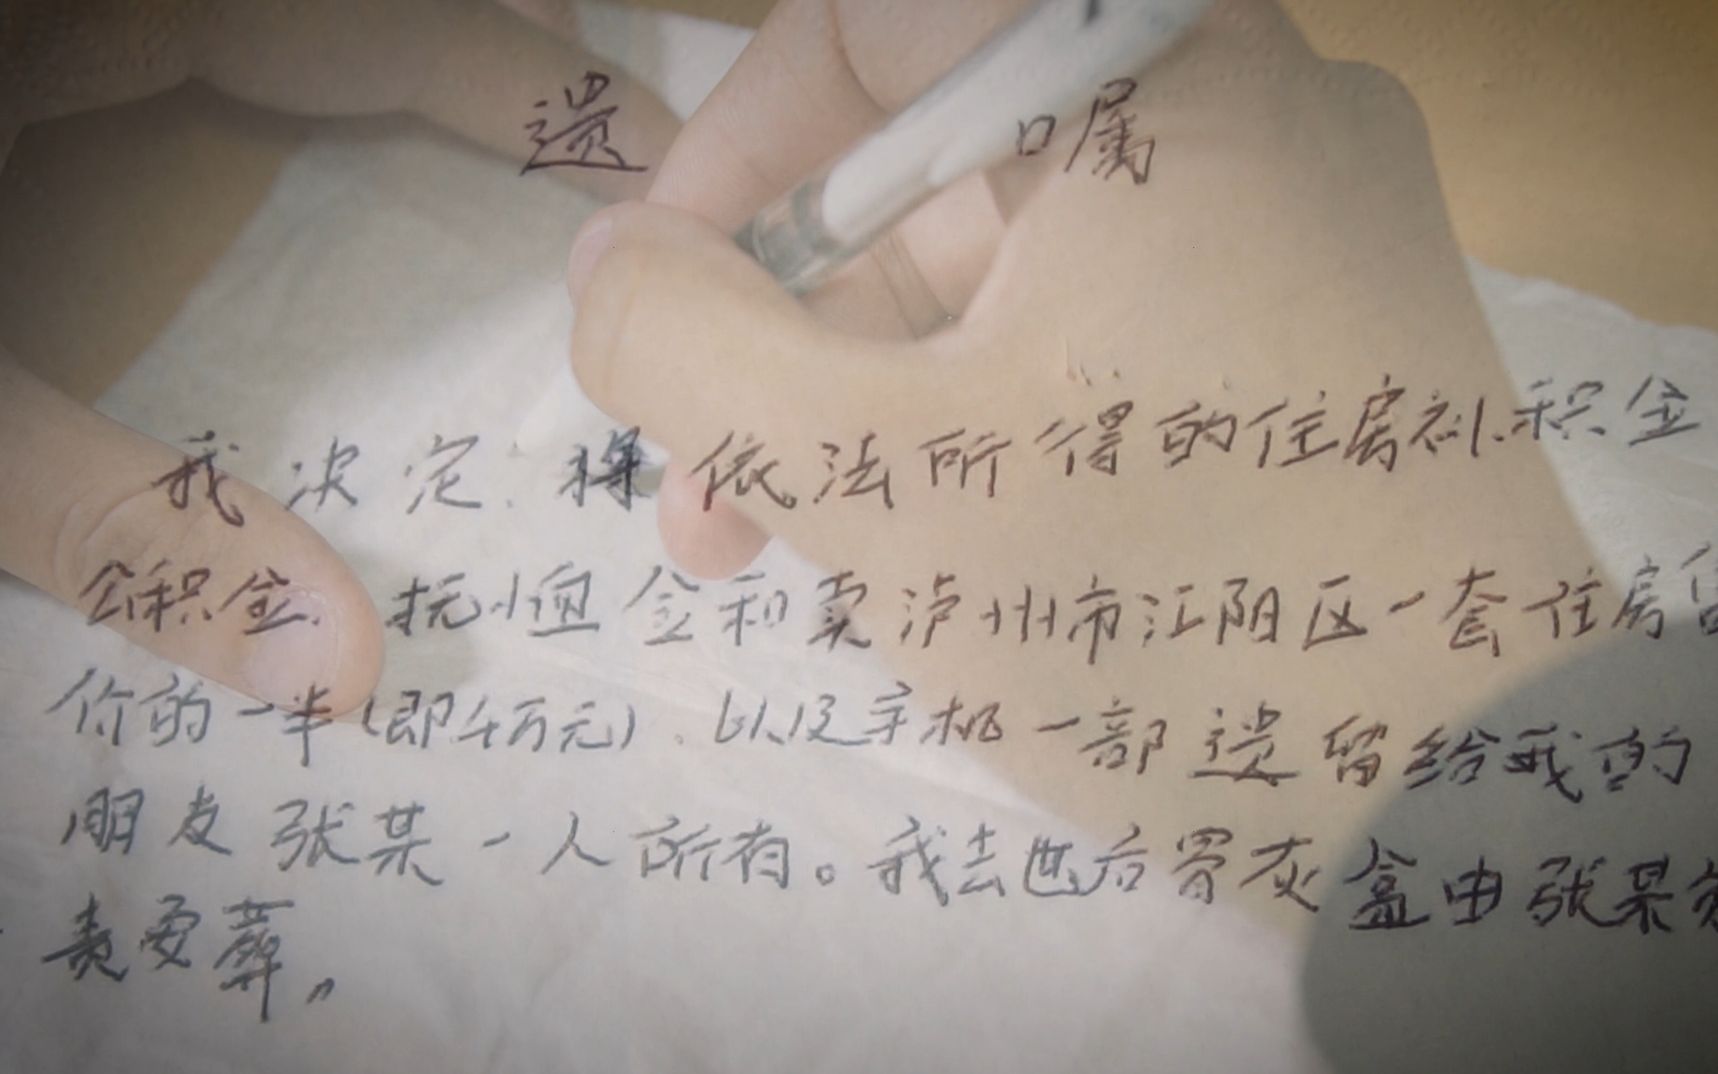 遗嘱
我决定将依法所得的住房补积金
公积金、抚恤金和卖泸州市江阳区一套住房售
价的一半(即4万元)、以及手机一部遗留给我的
朋友张某一人所有。我去世后骨灰盒由张某负
责安葬。